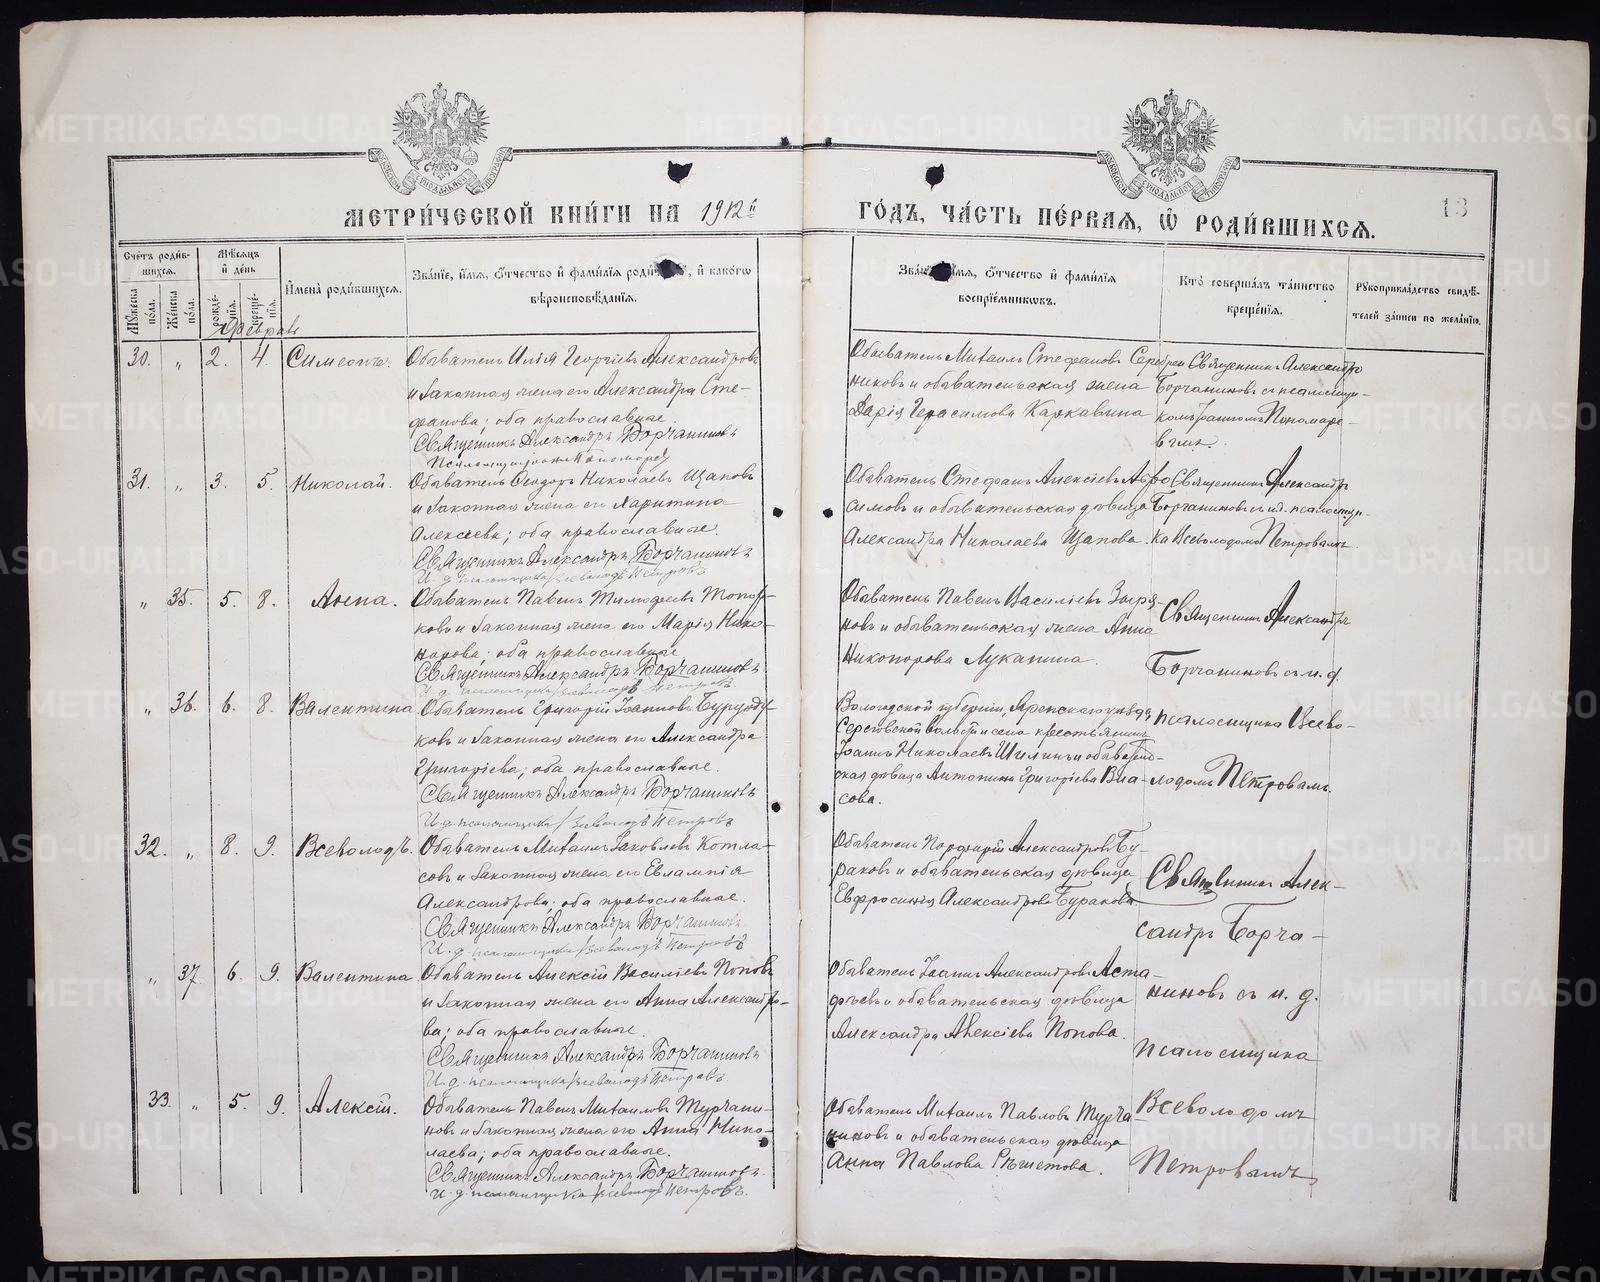 МЕТРИ́ЧЕСКОЙ КНИ́ГИ НА 1912 й
ГО́ДЪ, ЧА́СТЬ ПЕ́РВАЯ, Ѿ РОДИ́ВШИХСѦ.
13
Сче́тъ роди́вшихсѧ.
Мѣ́сѧцъ и҆ де́нь
И҆мена̀ роди́вшихсѧ.
Зва́нїе, и҆́мѧ, ѻ҆́тчество и҆ фами́лїѧ роди́
, и҆ како́гѡ
вѣроисповѣ́данїѧ.
Зва́
и҆́мѧ, ѻ҆́тчество и҆ фами́лїѧ
воспрїе́мниковъ.
Кто̀ соверша́лъ та́инство
креще́нїѧ.
Рꙋкоприкла́дство свидѣ́-
телей за́писи по жела́нїю.
Мꙋ́жеска по́ла.
Же́нска по́ла.
рожде́-нїѧ.
креще́-нїѧ.
Февраль
30. " 2. 4. Симеонъ.
Обыватель Илія Георгіевъ Александровъ
и законная жена его Александра Сте-
фанова; оба православные
Священникъ Александръ Борчаниновъ
Обыватель Михаилъ Стефановъ Серебрен
никовъ и обывательская жена
Дарія Герасимова Каркавина
Священникъ Александр
Борчаниновъ съ псаломщи-
комъ Пономаре-
вымъ.
31. " 3. 5. Николай.
Обыватель Феодоръ Николаевъ Щаповъ
и законная жена его Харитина
Алексіева; оба православные.
Священникъ Александръ Борчаниновъ
И. д. псаломщика Всеволодъ Петровъ
Обыватель Стефанъ Алексіевъ Абро
симовъ и обывательская дѣвица
Александра Николаева Щапова.
Священникъ Александръ
Борчаниновъ съ и.д. псаломщи-
ка Всеволодомъ Петровымъ.
" 35. 5. 8. Анна.
Обыватель Павелъ Тимофеевъ Топор-
ковъ и законная жена его Марія Нико-
норова; оба православные
Священникъ Александръ Борчаниновъ
И. д. псаломщика Всеволодъ Петровъ
Обыватель Павелъ Василіевъ
новъ и обывательская жена Анна
Никонорова Лукапина.
Священникъ Александръ
Борчаниновъ съ и. д.
" 36. 6. 8. Валентина
Обыватель Григорій Іоанновъ Бурунду-
ковъ и законная жена его Александра
Григоріева; оба православные.
Священникъ Александръ Борчаниновъ
И. д. псаломщика Всеволодъ Петровъ
Вологодской губерніи, Яренскаго уѣзда,
Сереговской волости и села крестьянинъ
Іоаннъ Николаевъ Шилинъ и обыватель-
ская дѣвица Антонина Григоріева Вла-
сова.
псаломщика Всево-
лодомъ Петровымъ.
32. " 8. 9. Всеволодъ.
Обыватель Михаилъ Іаковлевъ Котла-
совъ и законная жена его Евлампія
Александрова; оба православные.
Священникъ Александръ Борчаниновъ
И. д. псаломщика Всеволодъ Петровъ
Обыватель Порфирій Александровъ Бу-
раковъ и обывательская дѣвица
Евфросинія Александрова Буракова.
Священникъ Алек-
сандръ Борча-
" 37. 6. 9. Валентина
Обыватель Алексій Василіевъ Поповъ
и законная жена его Анна Александро-
ва; оба православные.
Священникъ Александръ Борчаниновъ
И. д. псаломщика Всеволодъ Петровъ.
Обыватель Іоаннъ Александровъ Аста-
фьевъ и обывательская дѣвица
Александра Алексіева Попова.
ниновъ съ и. д.
псаломщика
33. " 5. 9. Алексій.
Обыватель Павелъ Михаиловъ Турчани-
новъ и законная жена его Анна Нико-
лаева; оба православные.
Священникъ Александръ Борчаниновъ.
И. д. псаломщика Всеволодъ Петровъ.
Обыватель Михаилъ Павловъ Турча
ниновъ и обывательская дѣвица
Анна Павлова Рѣшетова.
Всеволодомъ
Петровымъ
METRIKI.GASO-URAL.RU